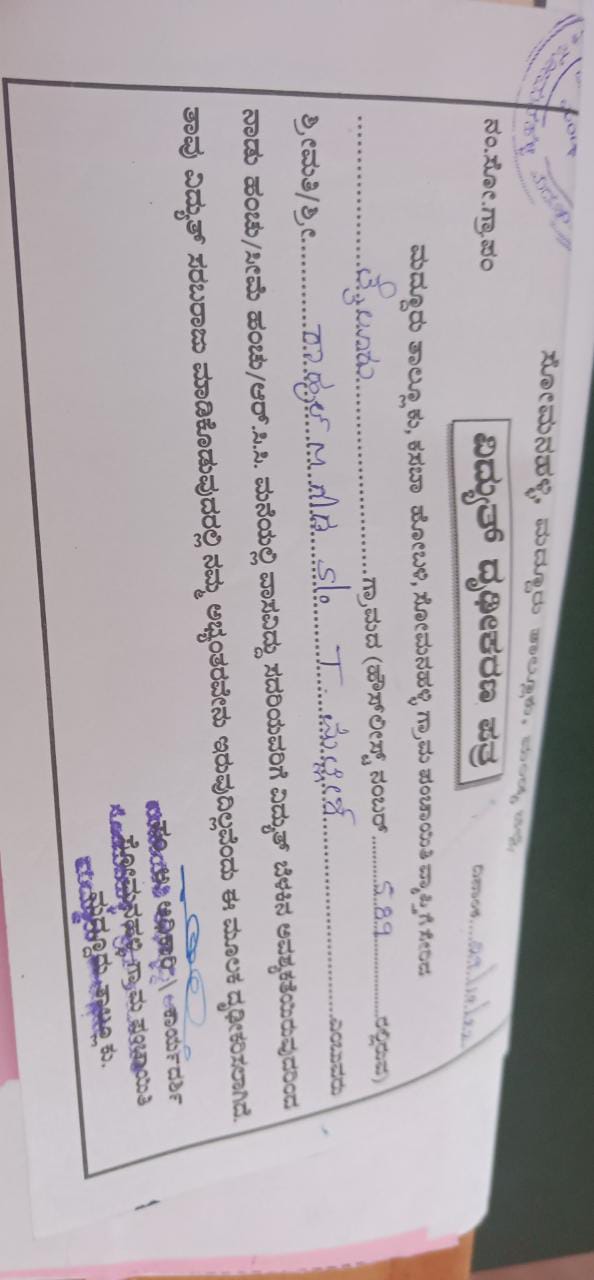 ಸೋಮನಹಳ್ಳಿ, ಮದ್ದೂರು ತಾಲ್ಲೂಕು, ಮಂಡ್ಯ ಜಿಲ್ಲೆ
ನಂ.ಸೋ.ಗ್ರಾ.ಪಂ
ವಿದ್ಯುತ್ ದೃಢೀಕರಣ ಪತ್ರ
ದಿನಾಂಕ
ಮದ್ದೂರು ತಾಲ್ಲೂಕು, ಕಸಬಾ ಹೋಬಳಿ, ಸೋಮನಹಳ್ಳಿ ಗ್ರಾಮ ಪಂಚಾಯಿತಿ ವ್ಯಾಪ್ತಿಗೆ ಸೇರಿದ
ಗ್ರಾಮದ (ಹೌಸ್‌ಲೀಸ್ಟ್ ನಂಬರ್ 589 ರಲ್ಲಿರುವ)
ಶ್ರೀಮತಿ/ಶ್ರೀ ರಾಹುಲ್ S/o T ಎಂಬುವರು
ನಾಡು ಹಂಚು/ಸೀಮೆ ಹಂಚು/ಆರ್.ಸಿ.ಸಿ. ಮನೆಯಲ್ಲಿ ವಾಸವಿದ್ದು ಸದರಿಯವರಿಗೆ ವಿದ್ಯುತ್ ಬೆಳಕಿನ ಅವಶ್ಯಕತೆಯಿರುವುದರಿಂದ
ತಾವು ವಿದ್ಯುತ್ ಸರಬರಾಜು ಮಾಡಿಕೊಡುವುದರಲ್ಲಿ ನಮ್ಮ ಅಭ್ಯಂತರವೇನು ಇರುವುದಿಲ್ಲವೆಂದು ಈ ಮೂಲಕ ದೃಢೀಕರಿಸಲಾಗಿದೆ.
ಕಾರ್ಯದರ್ಶಿ
ಸೋಮನಹಳ್ಳಿ ಗ್ರಾಮ ಪಂಚಾಯಿತಿ
ಮದ್ದೂರು ತಾಲ್ಲೂಕು.